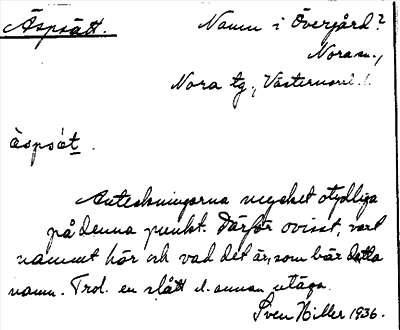 Äspsätt. Namn i Övergård?
Nora sn.,
Nora tg., Västernorrl. l.
äspsä̀t.
Anteckningarna mycket otydliga
på denna punkt. Därför ovisst, vart
namnet hör och vad det är, som bär detta
namn. Trol. en slått el. annan utäga.
Sven Hiller 1936.